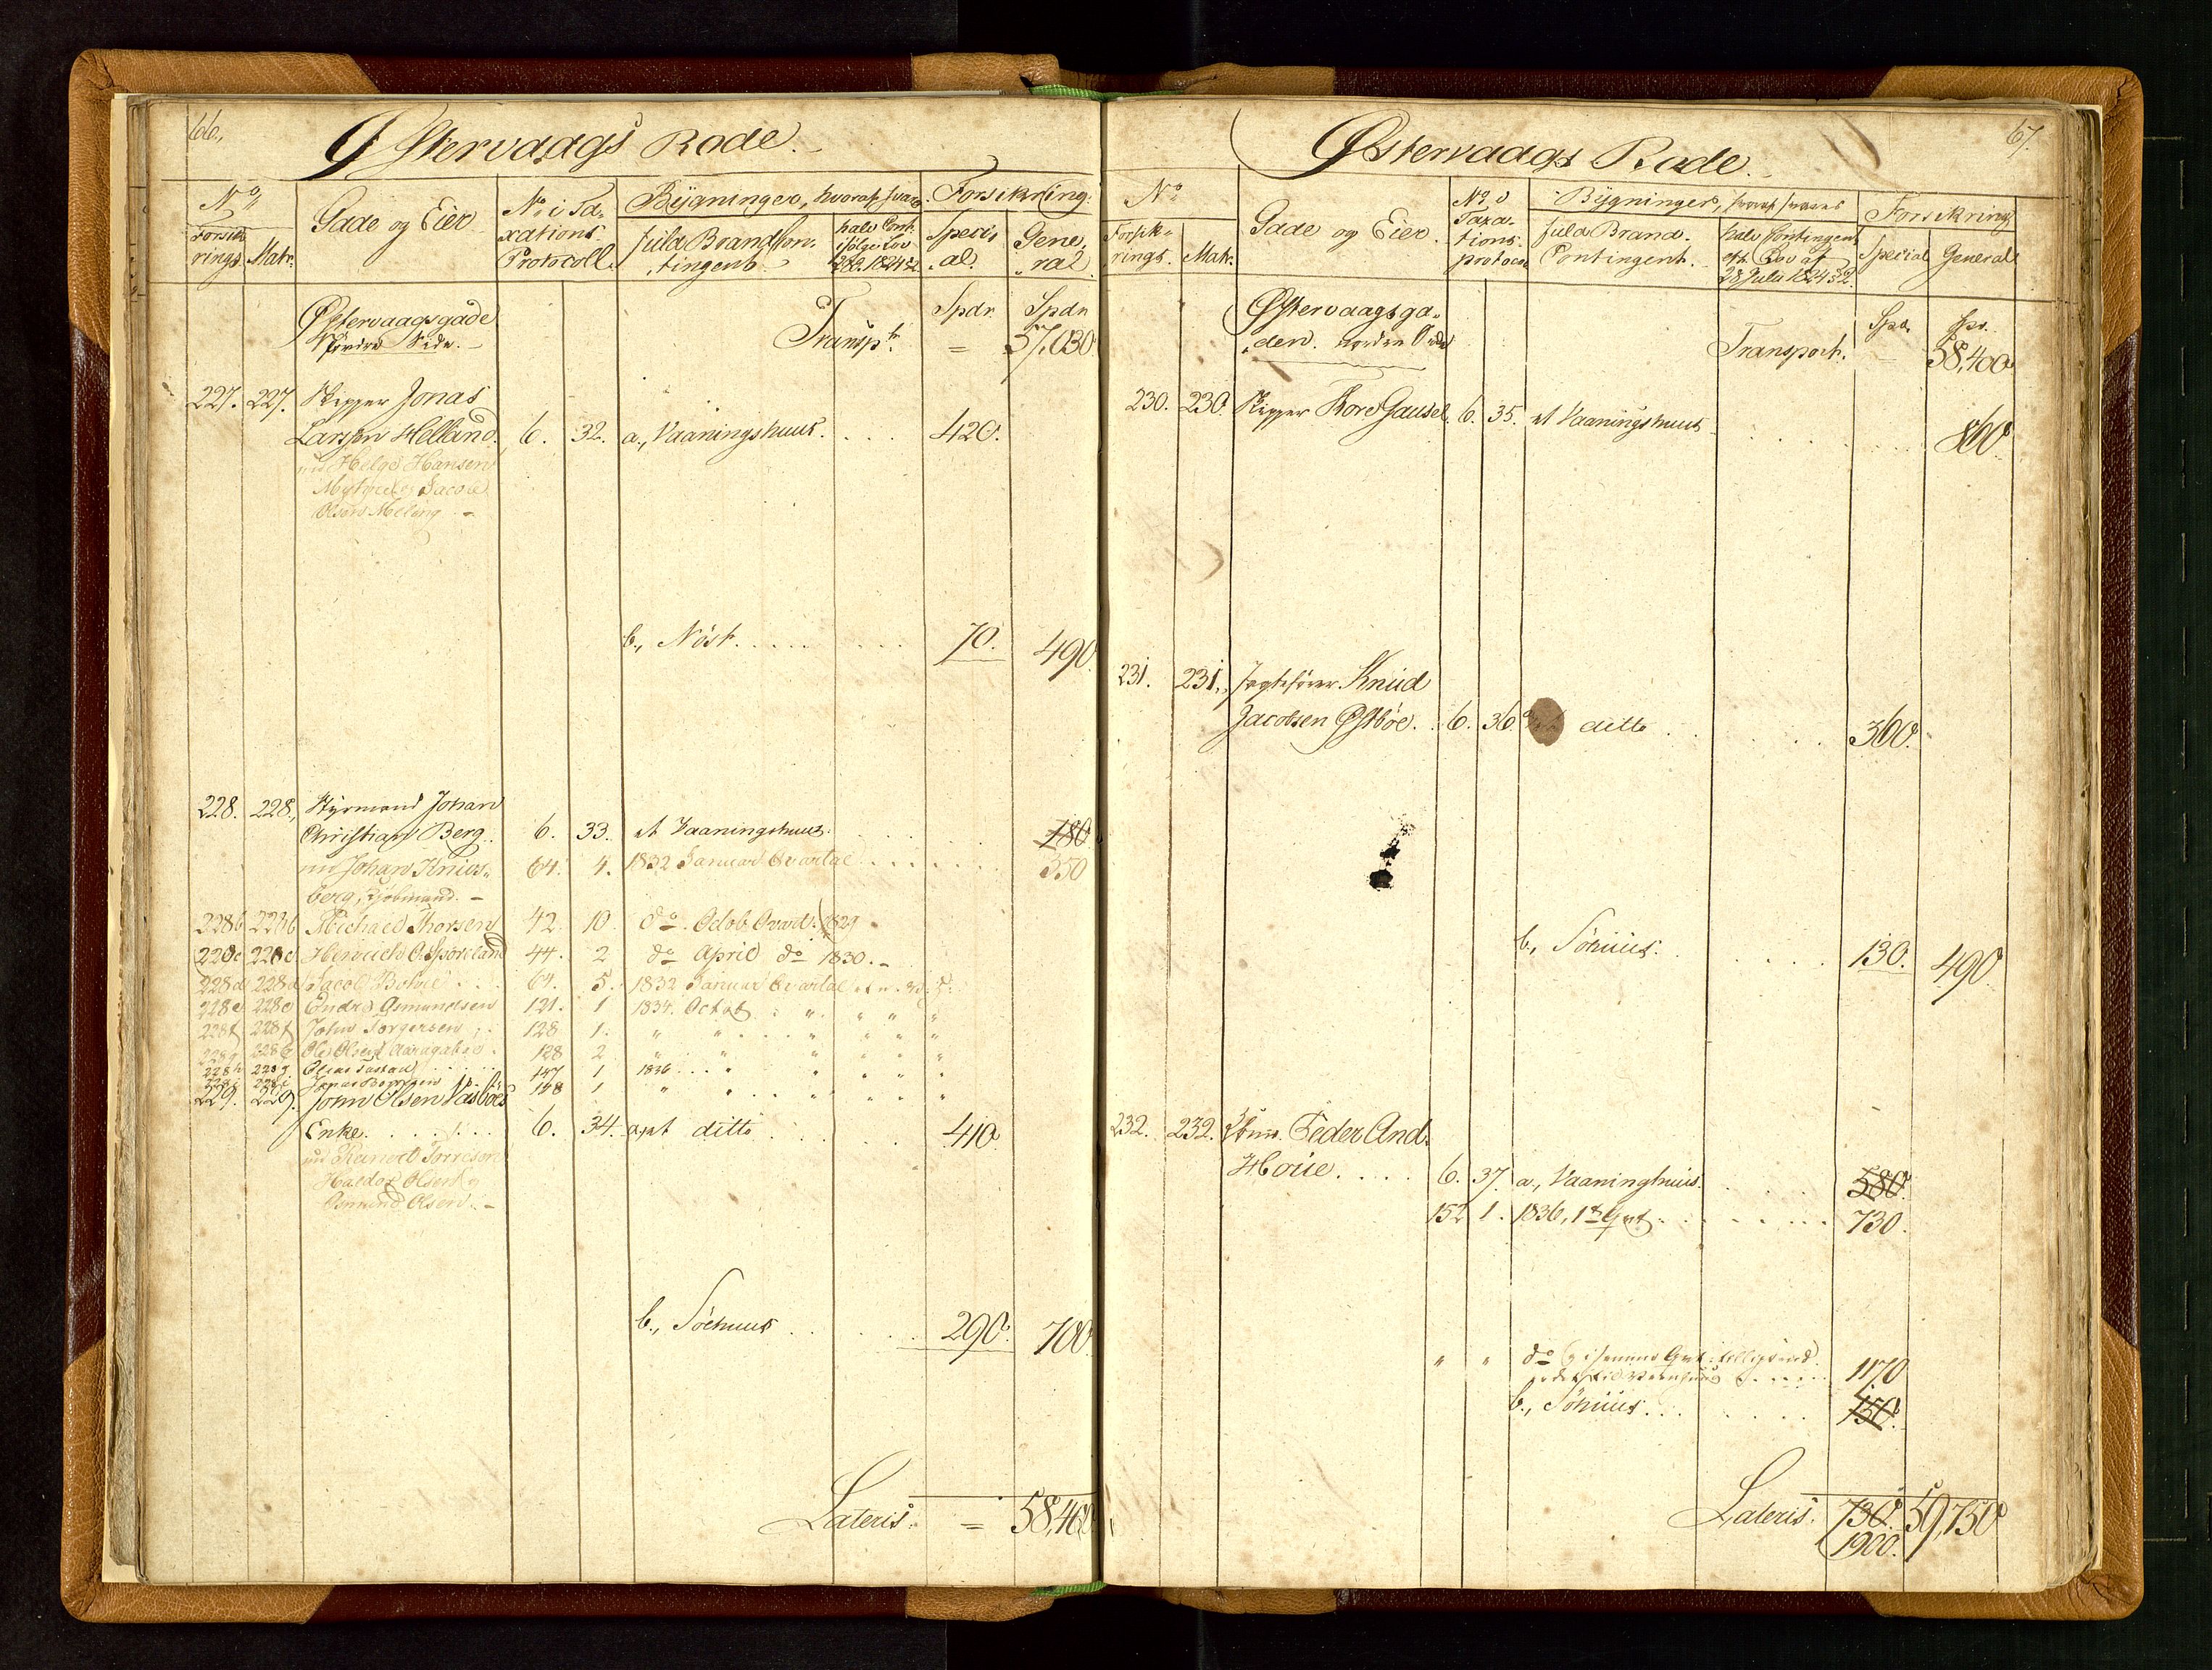 66.
Østervaags Rode.
No
Forsik-
rings.
Matr.
Gade og Eier
No i Ta-
xations
Protocoll.
Bygninger, hvoraf svares
fuld Brandkon-
tingent
halv Cont:
ifölge Lov
Forsikring.
Speci-
al.
Gene-
ral
Østervaagsgade
Nordre Side.
Transpt.
Spdr.
Spdr
= 57,030.
227. 227. Skipper Jonas
Larsen Helland. 6. 32. a., Vaaningshuus. . . . 420.
nu Helge Hansen
Jacob
Olsen Meling
b., Nöst. . . . . . . . 70. 490.
228. 228., Styrmand Johan
Christian Berg. 6. 33. et Vaaningshuus. 180
nu Johan Knies- 64. 4. 1832 Januar Qvartal . . . . . . 350
berg, Kjöbmand.
228b 228b Michael Thorsen 42. 10. do. Octob. Qvart. 1829
228c 228c Henrich 44. 2 do April do 1830.
228d 228d Jacob 64. 5. 1832 Januar Qvartal
228e 228e Endre Asmundsen 121. 1 1834. Octob. " " " "
228f 228f John Torgersen 128 1. " " " " " "
228g 228g Ole Olsen 128 2 " " " " " "
228h 228h Elias 147 1 1836 " " " " "
228i 228i 148 1 " " " " " "
229. 229. John Olsen Vasböes
Enke. . . . . . 6. 34. a, et ditto . . . . . 410.
nu Reinert Torresen
Haldor Olsen og
Osmund Olsen.
b., Söehuus . . . . . 290. 700.
Lateris. = 58,400.
67.
Østervaags Rode.
No
Forsik-
rings.
Matr.
Gade og Eier.
No i
Taxa-
tions-
protocol
Bygninger, hvoraf svares
fuld Brand-
Contingent.
halv Contingent
eft. Lov af
28 Julii 1824 § 2.
Forsikring
Special
General
Østervaagsga-
den. nordre Side
Transport.
Spd.
Spd.
58,400
230. 230. Skipper Tore Gausel. 6. 35. et Vaaningshuus . . . . . 860.
231. 231., Jagtefører Knud
Jacobsen Østböe. . 6. 36. ditto . . . . . 360.
b., Söhuus. . . . . . 130. 490.
232. 232. Peder And.
Houe. . . . . 6. 37. a., Vaaninghuus. . . . 580.
152 1. 1836, 1st Qvt. . . . . . . . 730.
" " do 1170
b., Söhuus . . . . . . . 150.
Lateris. 730. 59,750
1900.